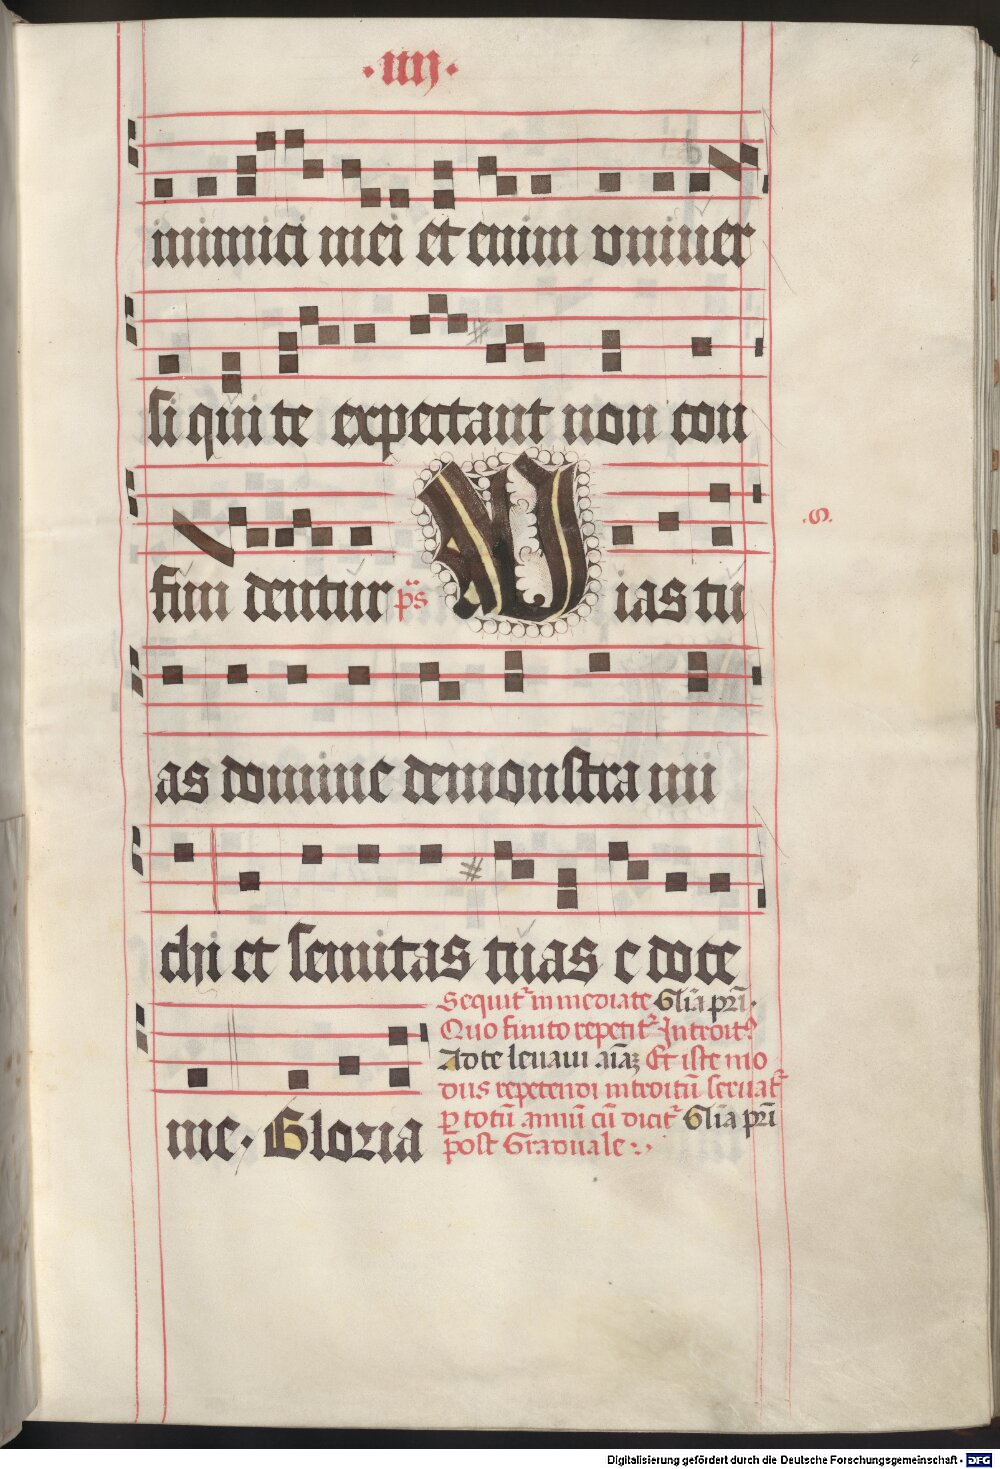 ·iiij·
inimici mei et enim vniuer
si qui te expectant non con
fun dentur ps Vias tu
as domine demonstra mi
chi et semitas tuas e doce
me· Gloria
Sequit᷑ inmediate Gl̃ia pr̃i·
Quo finito repetit᷑ Introitꝰ
Ad te leuaui aĩaꝫ Et iste mo
dus repetendi introitũ seruat᷑
ꝑ totũ annũ cũ dicit᷑ Gl̃ia pr̃i
post Graduale :·
·S·
Digitalisierung gefördert durch die Deutsche Forschungsgemeinschaft - DFG